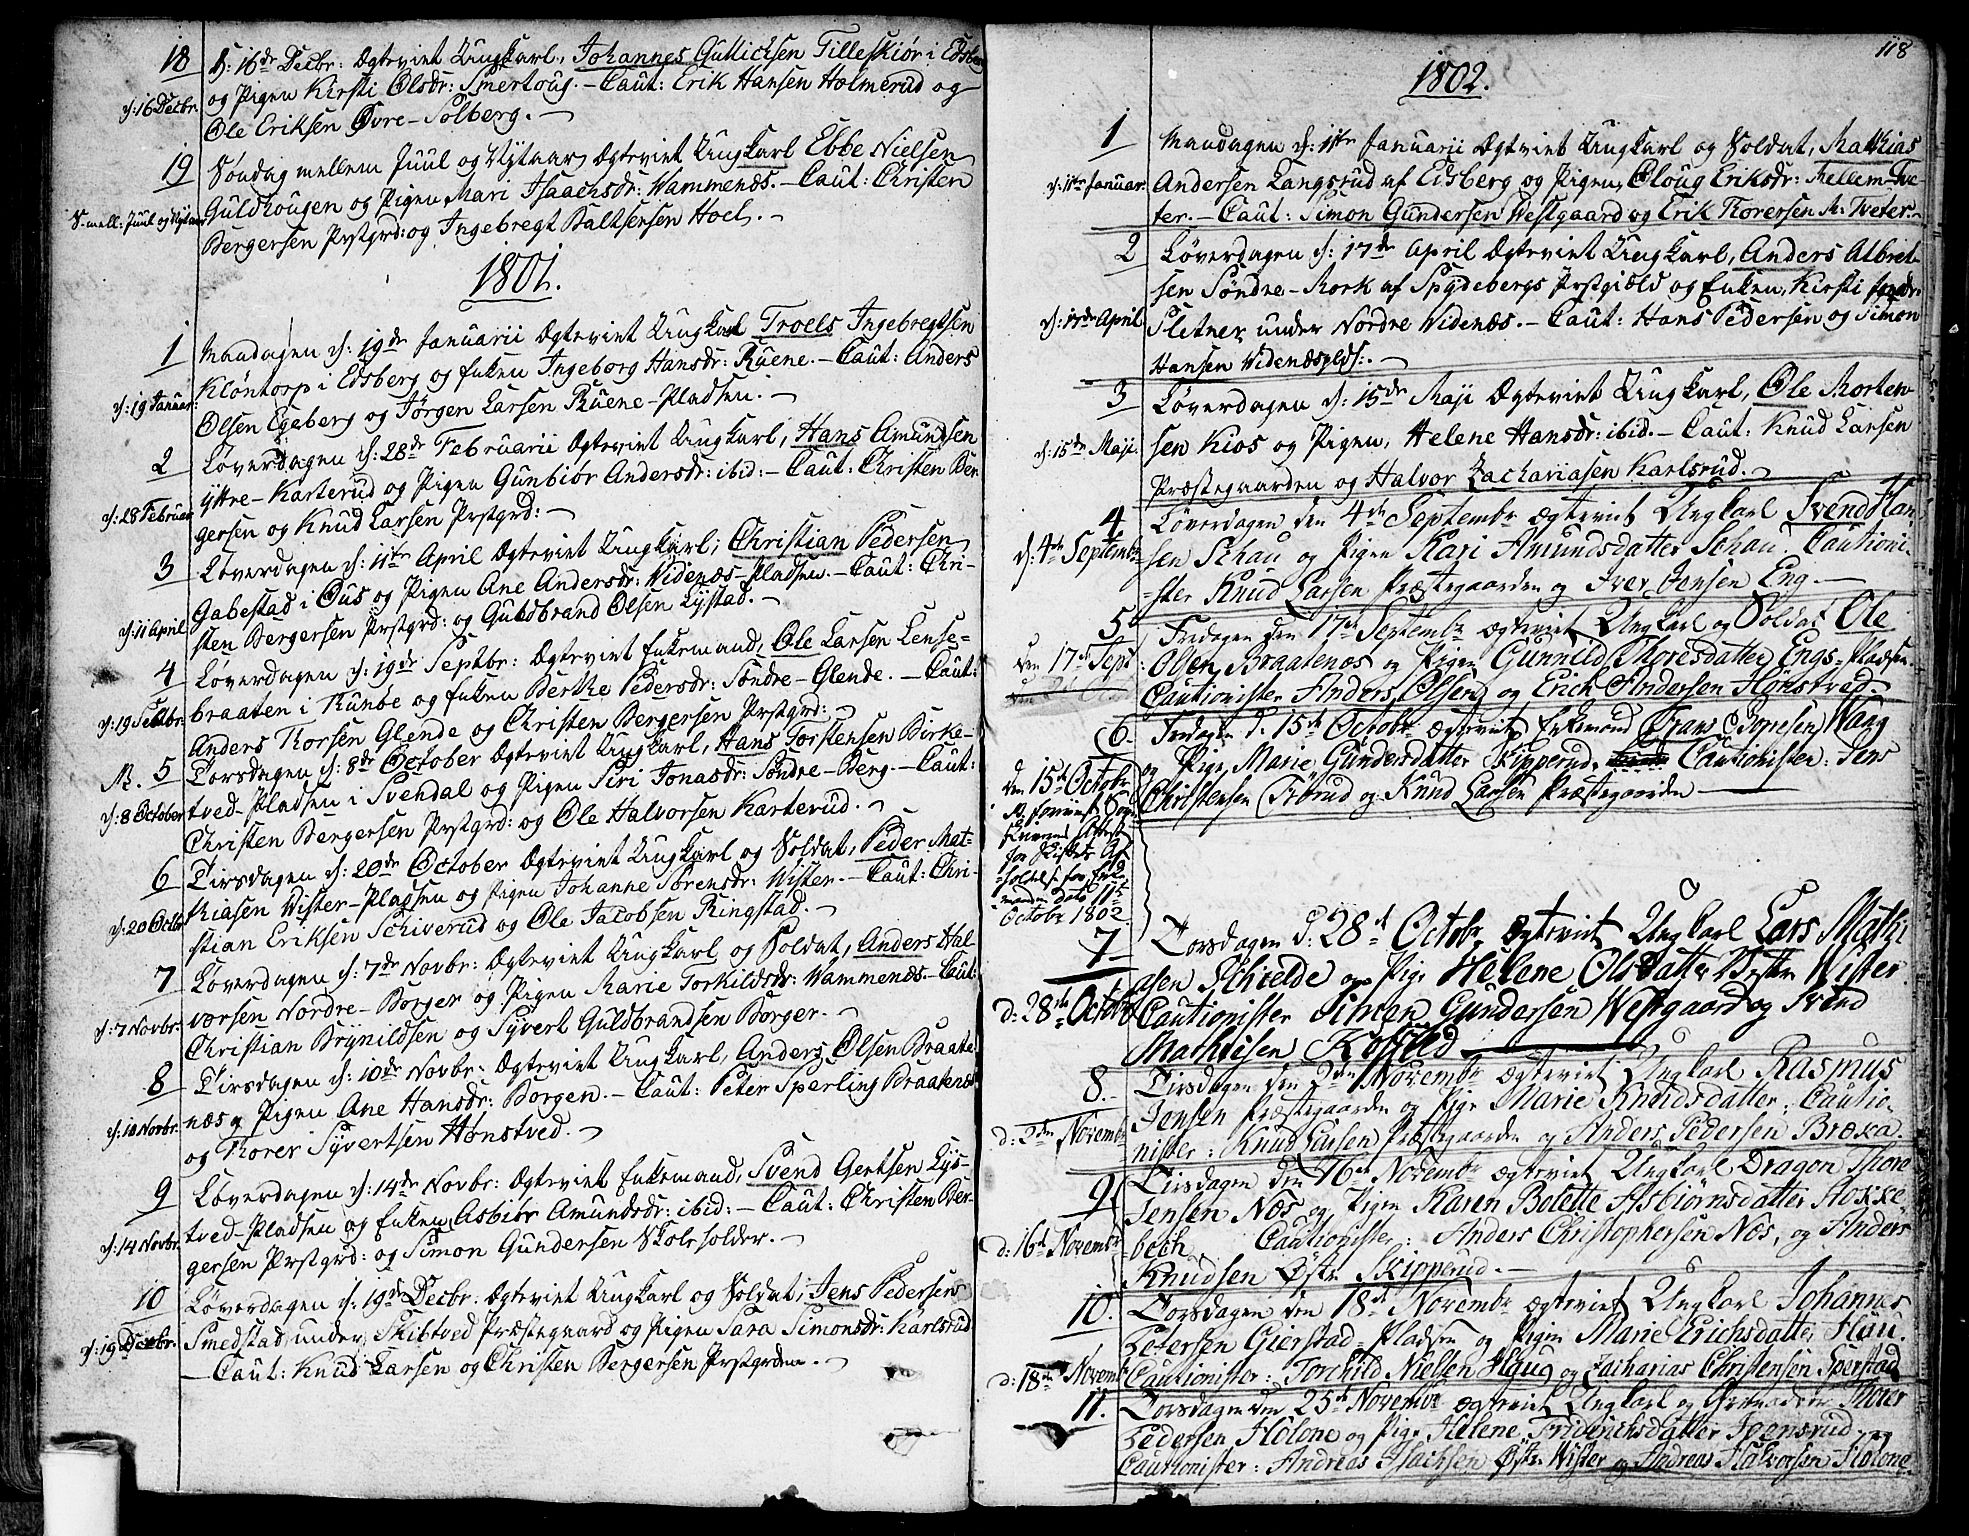 18
d: 16de Decbr: Ægteviet Ungkarl, Johannes Gullichsen Tilleskiør i Edsberg
d: 16 Decbr.
og Pigen Kirsti Olsdr: Smertoug. – Caut: Erik Hansen Holmerud og
Ole Eriksen Øvre-Solberg. –
19
Søndag mellem Juul og Nytaar Ægteviet Ungkarl Ebbe Nielsen
S. mell: Juul og Nytaar
Guldhougen og Pigen Mari Isaachsdr: Wammenæs. – Caut: Christen
Bergersen Prstgrd: og Ingebregt Baltsersen Hoel. –
1801.
1
Maadagen d: 19de Januarii Ægteviet Ungkarl Troels Ingebregtsen
d: 19 Januar:
Kløntorp i Edsberg og Enken Ingeborg Hansdr: Ruene. – Caut: Anders
Olsen Egeberg og Jørgen Larsen Ruene-Pladsen. –
2
Løverdagen d: 28de Februarii Ægteviet Ungkarl, Hans Amundsen
d: 28 Februar
Yttre-Karterud og Pigen Gunbiør Andersdr: ibid: – Caut: Christen Ber-
gersen og Knud Larsen Prstgrd: –
3
Løverdagen d: 11te April Ægteviet Ungkarl, Christian Pedersen
d: 11 April
Gabestad i Øus og Pigen Ane Andersdr: Widenæs-Pladsen. – Caut: Chri-
sten Bergersen Prstgrd: og Guldbrand Olsen Lystad. –
4
Løverdagen d: 19de Septbr: Ægteviet Enkemand, Ole Larsen Lense-
d: 19 Septbr.
braaten i Tunbe og Enken Berthe Pedersdr: Søndre-Glende. – Caut:
Anders Thorsen Glende og Christen Bergersen Prstgrd: –
5
Torsdagen d: 8de October Ægteviet Ungkarl, Hans Torstensen Birke-
d: 8 October
tved-Pladsen i Svendal og Pigen Siri Jonasdr: Søndre-Berg – Caut:
Christen Bergersen Prstgrd: og Ole Halvorsen Karterud. –
6
Tirsdagen d: 20de October Ægteviet Ungkarl og Soldat, Peder Mat-
d: 20 Octbr
hiasen Wister-Pladsen og Pigen Johanne Sørensdr: Wister. – Caut: Chri-
stian Eriksen Schiverud og Ole Jacobsen Ringstad. –
7
Løverdagen d: 7de Novbr: Ægteviet Ungkarl og Soldat, Anders Hal-
d: 7 Novbr:
vorsen Nordre-Borger og Pigen Marie Torkildsdr: Wammenæs – Caut:
Christian Brynildsen og Syvert Guldbrandsen Borger. –
8
Tirsdagen d: 10de Novbr: Ægteviet Ungkarl, Anders Olsen Braate
d: 10 Novbr.
næs og Pigen Ane Hansdr: Borgen. – Caut: Peter Sperling Braatenæs
og Thorer Syvertsen Hønstved. –
9
Løverdagen d: 14de Novbr: Ægteviet Enkemand, Svend Gertsen Lys-
d: 14 Novbr.
tved-Pladsen og Enken Asbiør Amundsdr: ibid: – Caut: Christen Ber-
gersen Prstgrd: og Simon Gundersen Skoleholder. –
10
Løverdagen d: 19de Decbr: Ægteviet Ungkarl og Soldat, Jens Pedersen
d: 19 Decbr.
Smedstad under Skibtved Præstegaard og Pigen Sara Simonsdr: Karlsrud
– Caut: Knud Larsen og Christen Bergersen Prstgrden. –
118
1802.
1
Mandagen d: 11te Januarii Ægteviet Ungkarl og Soldat, Mathias
d: 11te Januar.
Andersen Langsrud af Edsberg og Pigen, Oloug Eriksdr: Mellem-Tve-
ter. – Caut: Simon Gundersen Westgaard og Erik Thorersen M: Tveter. –
2
Løverdagen d: 17de April Ægteviet Ungkarl, Anders Albret-
sen Søndre-Mork af Spydebergs Prstgiæld og Enken, Kirsti
d: 17de April
Sletner under Nordre Widenæs. – Caut: Hans Pedersen og Simon
Hansen Widenæsplds: –
3
Løverdagen d: 15de Maji Ægteviet Ungkarl, Ole Morten-
d: 15de Maji.
sen Kios og Pigen, Helene Hansdr: ibid. – Caut: Knud Larsen
Præstegaarden og Halvor Zachariasen Karlsrud. –
4
Løverdagen den 4de Septembr ægteviet Ungkarl Svend Han
d: 4de Septembr
sen Schau og Pigen Kari Amundsdatter Schau. Cautioni-
ster Knud Larsen Præstegaarden og Iver Jensen Eng. –
5
Fredagen den 17de Septembr ægteviet Ungkarl og Soldat Ole
den 17de Sept:
Olsen Braatenæs og Pigen Gunnild Thoresdatter Engs-Pladsen
Cautionister Anders Olsen og Erich Andersen Hønstved. –
6.
Fredagen d. 15de Octobr ægteviet Enkemand Waag
d. 15de Octobr
og Pige Marie Gundersdatter Skipperud. Cautionister: Jens
Christensen Frørud og Knud Larsen Præstegaarden –
for Skiftets Af
holdelse for Enke
manden dat: 11te
Octobr 1802
7
Torsdagen d: 28de Octobr ægteviet Ungkarl Lars Mathi
asen Schielde og Pige Helene Olsdatter Westre Wister.
d: 28de Octobr
Cautionister Simen Gundersen Westgaard og Svend
Mathisen Kolsted –
8.
Tirsdagen den 2den Novembr ægteviet Ungkarl Rasmus
Jensen Præstegaarden og Pige Marie Knudsdatter. Cautio-
d: 2den Novembr
nister: Knud Larsen Præstegaarden og Anders Pedersen Bræka.
9.
Tirsdagen den 16de Novembr ægteviet Ungkarl Dragon Thore
Jensen Næs og Pigen Karen Bolette Asbiørnsdatter Rokke-
d: 16de Novembr
bech, Cautionister: Anders Christophersen Næs, og Anders
Knudsen Østre Skipperud. –
10.
Torsdagen den 18de Novembr ægteviet Ungkarl Johannes
Petersen Gierstad-Pladsen og Pigen Marie Erichsdatter Hau.
d: 18de Novembr
Cautionister: Torchild Nielsen Haug og Zacharias Christensen Sperstad
11.
Torsdagen den 25de Novembr ægteviet Ungkarl og Grenadeer Thorer
Pedersen Holone og Pige Helene Friderichsdatter Ivensrud
Cautionister: Andreas Isachsen Østre Wister og Andreas Halvorsen Holone.